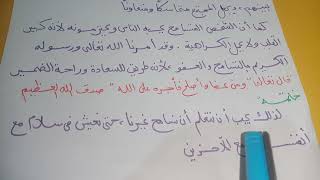 بينهم، ويجعل المجتمع متماسكا ومتعاونا
كما أن الشخص المتسامح يحبه الناس ويحترمونه لأنه كبير
القلب ولا يحمل الكراهية. وقد أمرنا الله تعالى ورسوله
الكريم بالتسامح والعفو لأنه طريق للسعادة وراحة الضمير
قال تعالى: "فمن عفا وأصلح فأجره على الله" صدق الله العظيم
خاتمة:
لذلك يجب أن نتعلم أن نسامح غيرنا، حتى نعيش في سلام مع
أنفسنا مع الآخرين